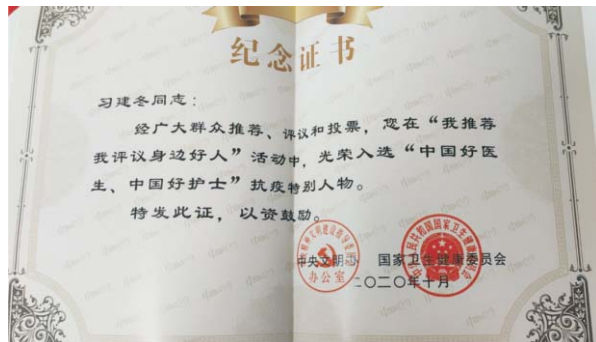 纪念证书
习建冬同志：
经广大群众推荐、评议和投票，您在“我推荐
我评议身边好人”活动中，光荣入选“中国好医
生、中国好护士”抗疫特别人物。
特发此证，以资鼓励。
中央文明办 国家卫生健康委员会
办公室
二〇二〇年十月